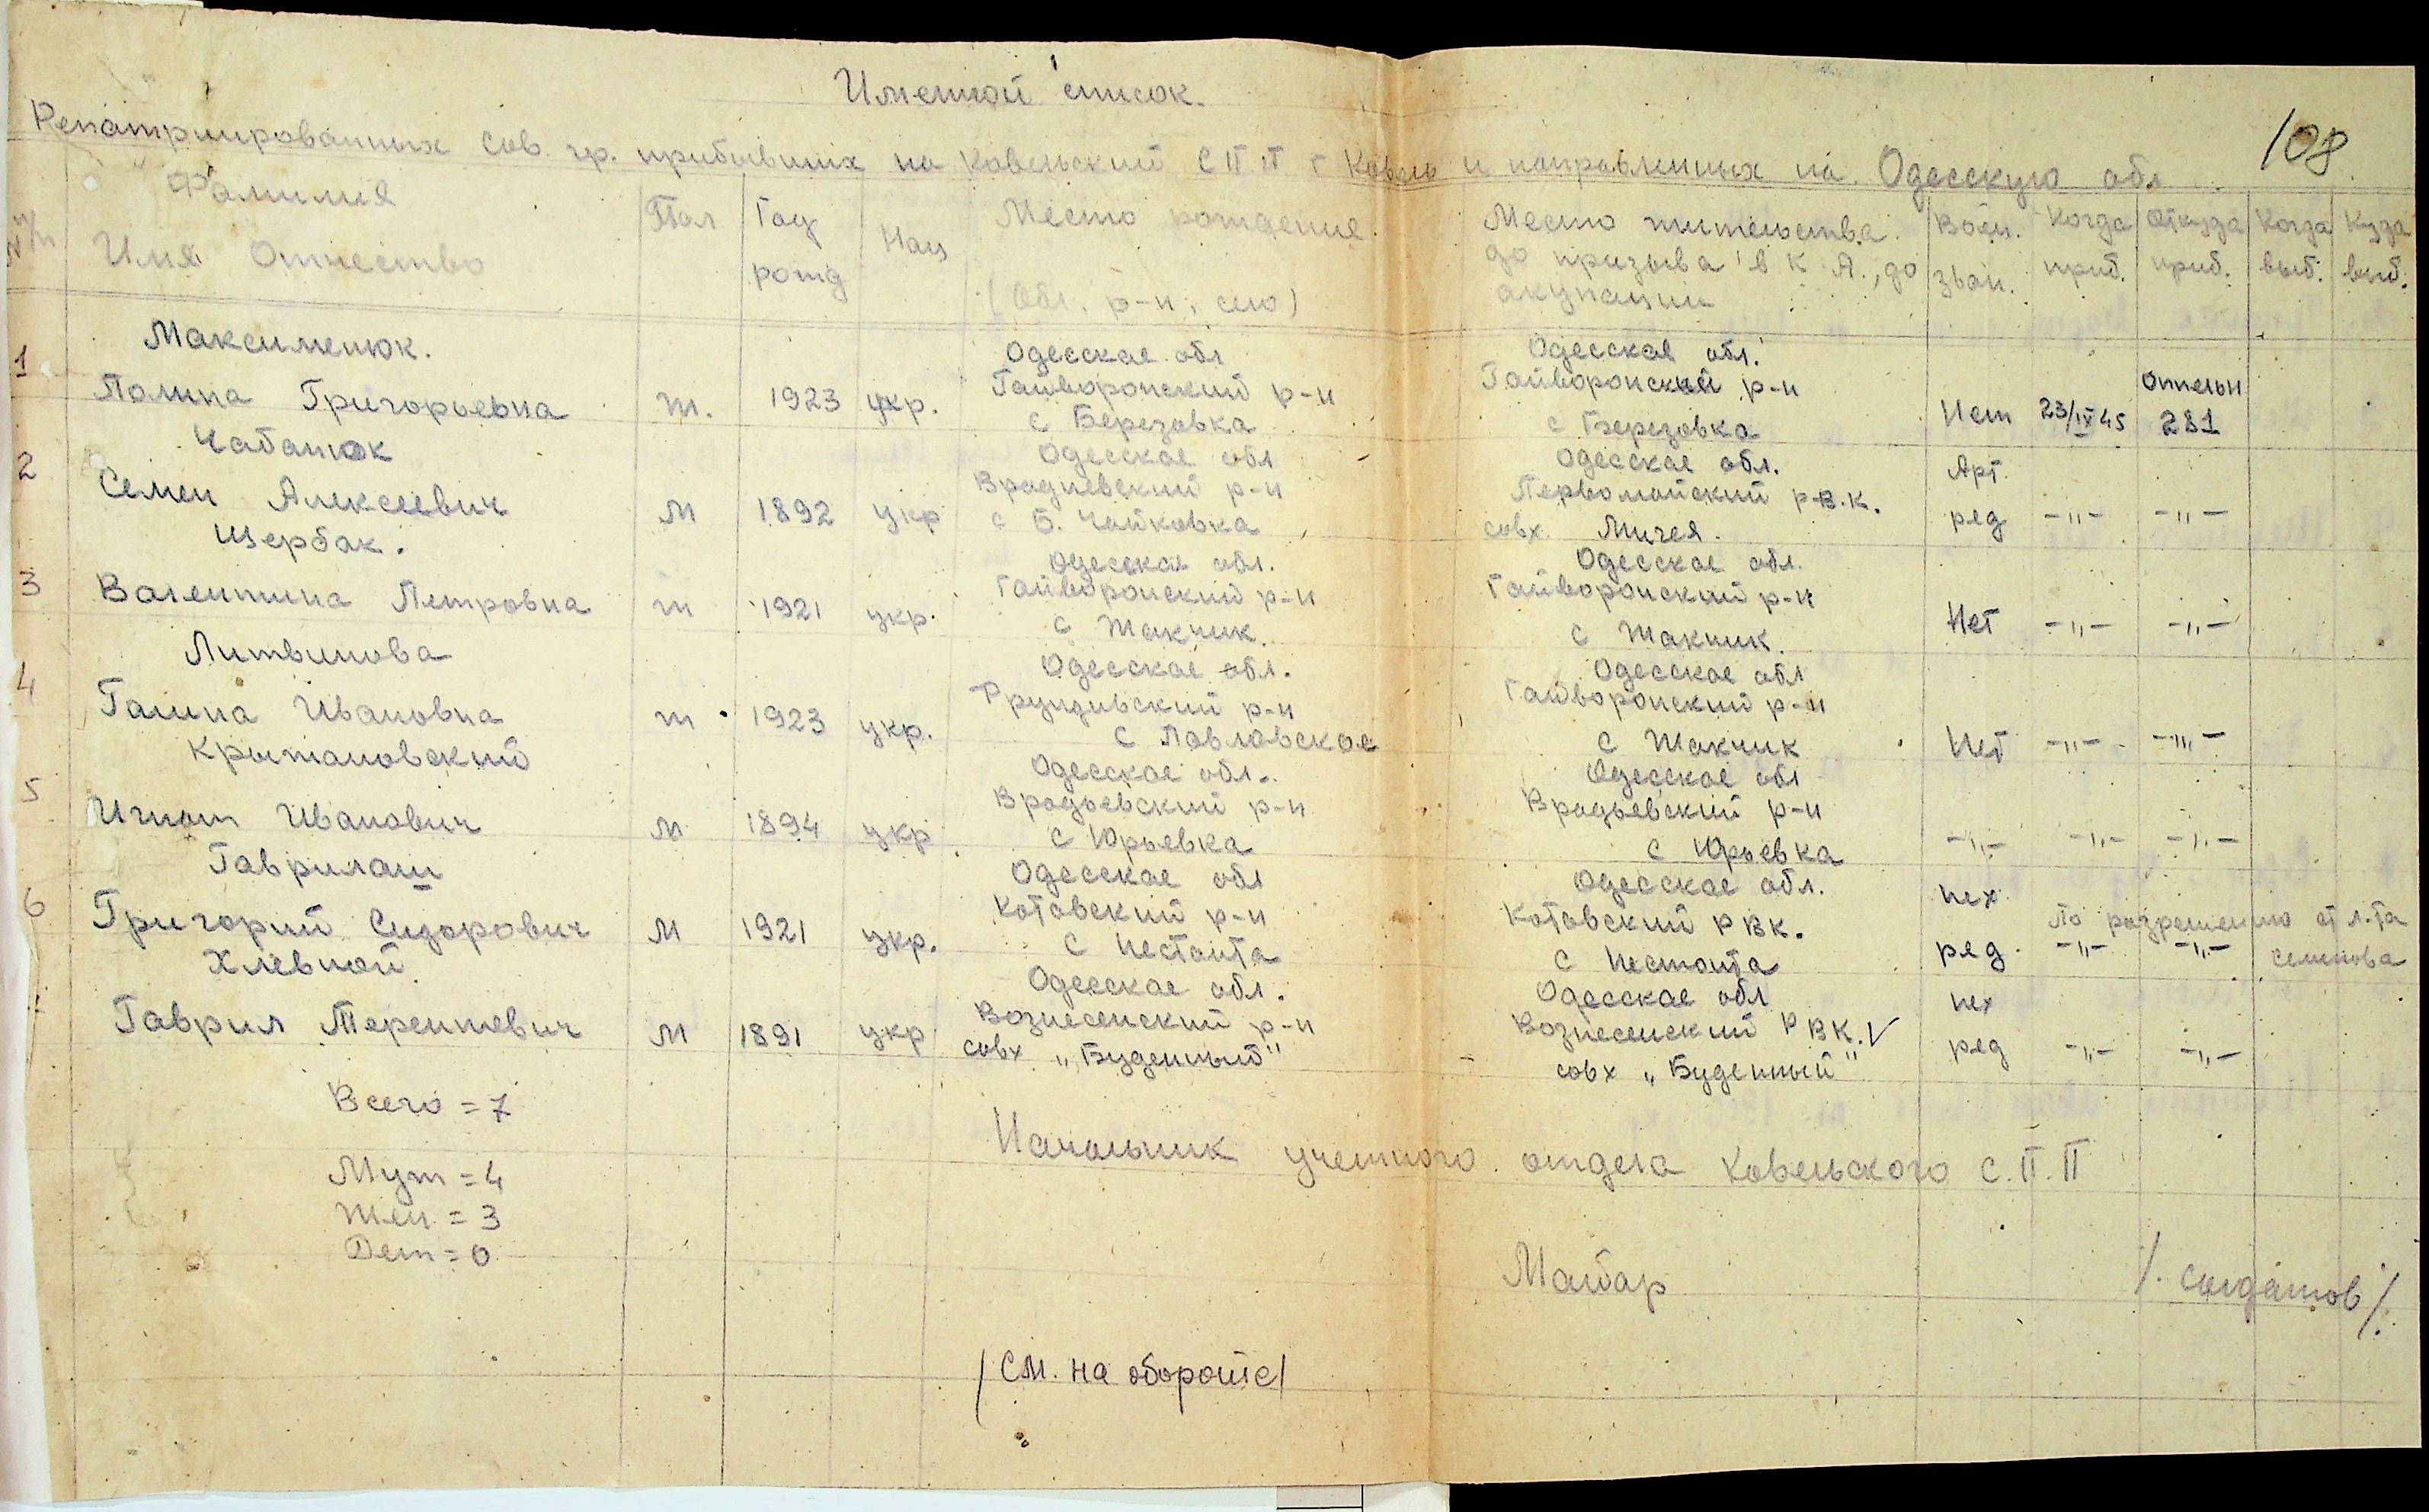 Именной список.
108
Репатриированных Сов. гр. прибывших на Ковельский С П.П г Ковель и направленных на Одесскую обл
№ п/п Фамилия Имя Отчество Пол Год рожд Нац Место рождения (Обл. р-н, село) Место жительства до призыва в К. А., до окупации Воен. зван. Когда приб. Откуда приб. Когда выб. Куда выб.
1 Максименюк.
Полина Григорьевна ж. 1923 укр. Одесская обл Гайворонский р-н с Березовка Одесская обл. Гайворонский р-н с Березовка Нет 23/IX 45 281
2 Чабанюк
Семен Алексеевич м 1892 укр Одесская обл Врадиевский р-н с Б. Чайковка Одесская обл. Первомайский р.В.К. совх. Мигея. Арт. ряд -"- -"-
3 Щербак.
Валентина Петровна ж 1921 укр. Одесская обл. Гайворонский р-н с Жакчик. Одесская обл. Гайворонский р-н с Жакчик. Нет -"- -"-
4 Литвинова
Галина Ивановна ж 1923 укр. Одесская обл. р-н с Павловская Одесская обл Гайворонский р-н с Жакчик Нет -"- -"-
5 Крыжановский
Игнат Иванович м 1894 укр Одесская обл. Врадьевский р-н с Юрьевка Одесская обл Врадьевский р-н с Юрьевка -"- -"- -"-
6 Гаврилаш
Григорий Сидорович м 1921 укр. Одесская обл Котовский р-н с Нестоита Одесская обл. Котовский Р ВК. с Нестоита пех. ряд. -"- -"- По разрешению ст л-та Семенова
Хлевной
Гаврил Терентевич м 1891 укр Одесская обл. Вознесенский р-н совх „Буденный" Одесская обл Вознесенский Р ВК. V совх „Буденный" пех ряд -"- -"-
Всего = 7
Муж = 4
Жен = 3
Дет = 0
Начальник учетного отдела Ковельского С.П.П
Майор /. Солдатов /.
/ См. на обороте/